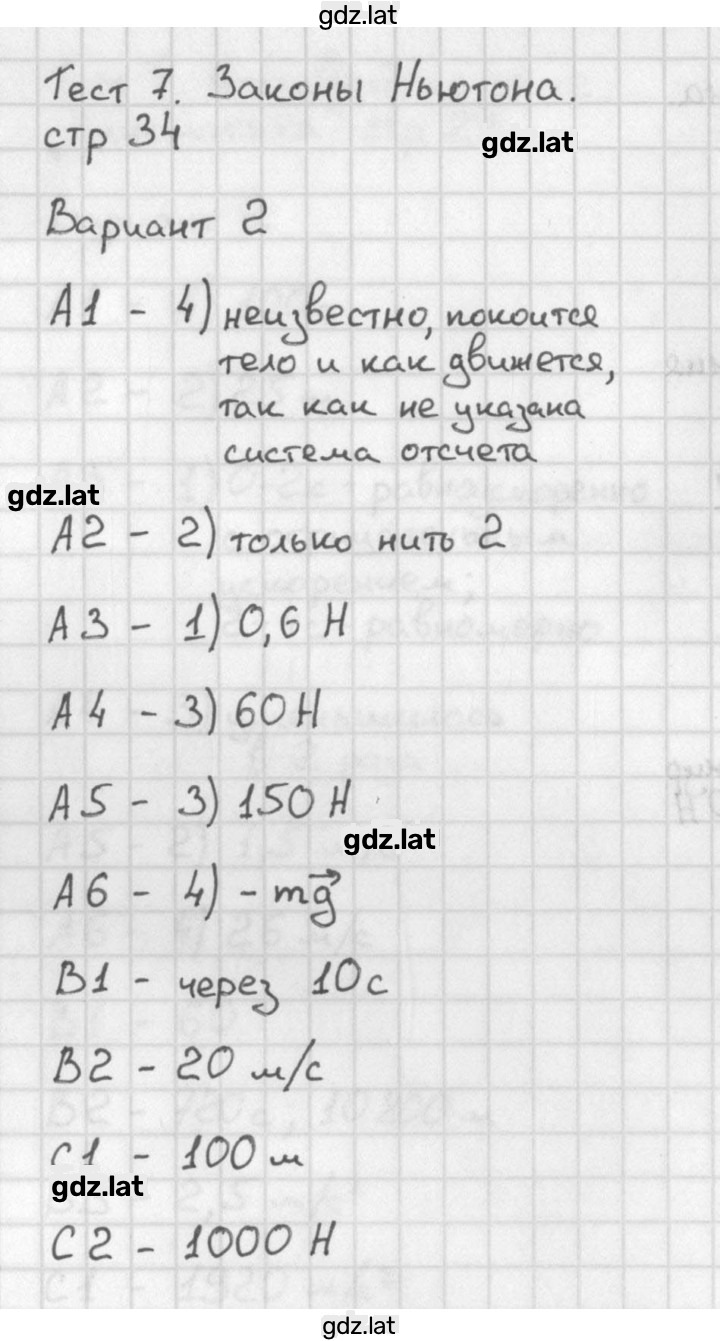 gdz.lat
Тест 7. Законы Ньютона.
стр 34
gdz.lat
Вариант 2
А1 - 4) неизвестно, покоится
тело и как движется,
так как не указана
система отсчета
gdz.lat
А2 - 2) только нить 2
А3 - 1) 0,6 Н
А4 - 3) 60 Н
А5 - 3) 150 Н
gdz.lat
А6 - 4) - mg⃗
В1 - через 10 с
В2 - 20 м/с
С1 - 100 м
gdz.lat
С2 - 1000 Н
gdz.lat